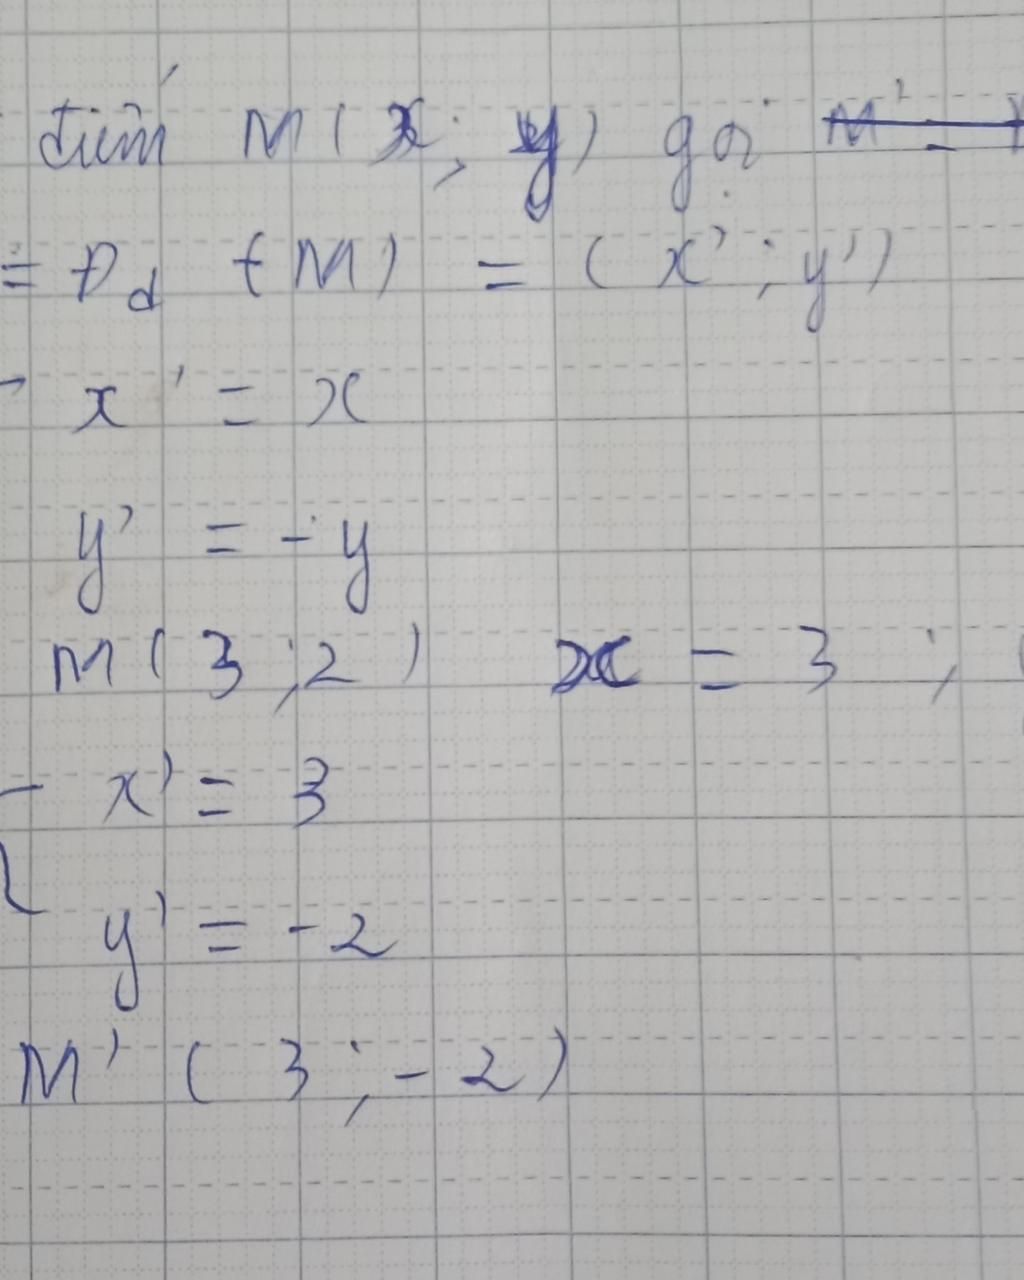 điểm M(x; y) gọi M' =
= Đd (M) = (x'; y')
x' = x
y' = -y
M(3;2) x = 3;
x' = 3
y' = -2
M' (3; -2)